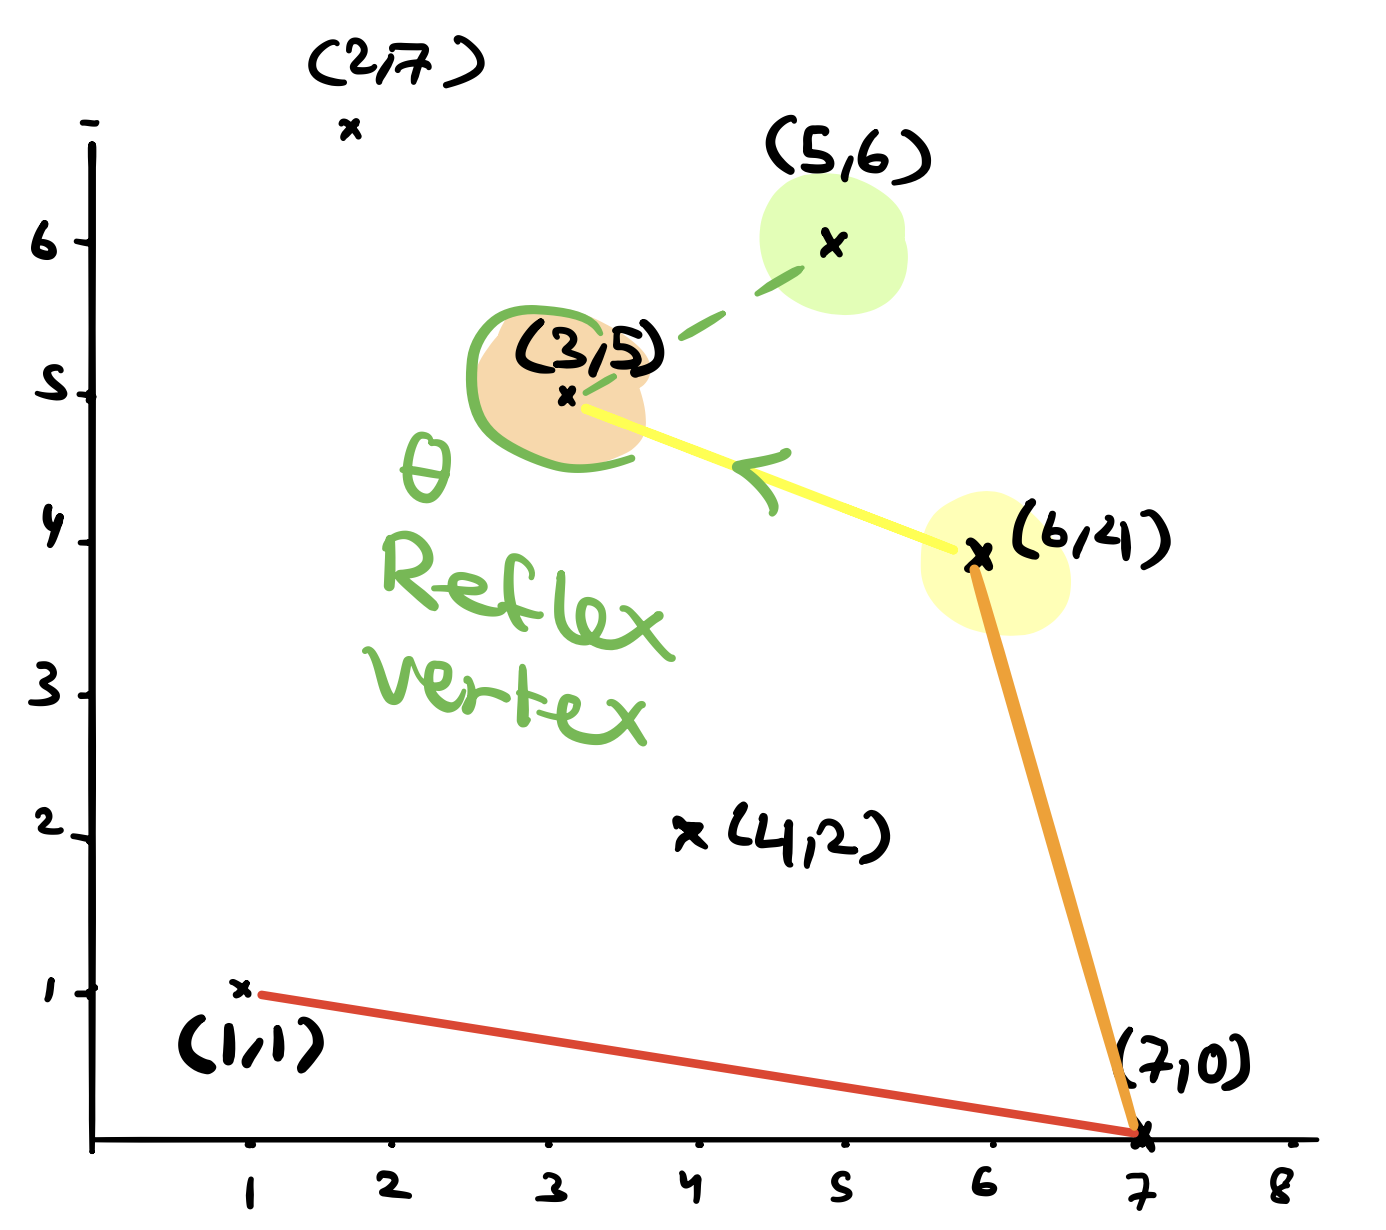 (2,7)
(5,6)
6
(3,5)
5
θ
(6,4)
4
Reflex
vertex
3
2
(4,2)
1
(1,1)
(7,0)
1 2 3 4 5 6 7 8